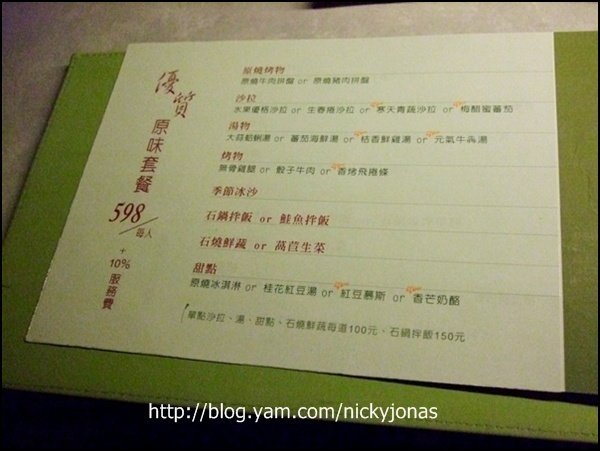 優質
原味套餐
598/每人
+
10%服務費
原燒烤物
原燒牛肉拼盤 or 原燒豬肉拼盤
沙拉
水果優格沙拉 or 生春捲沙拉 or 寒天青蔬沙拉 or 梅醋蜜蕃茄
湯物
大蒜蛤蜊湯 or 蕃茄海鮮湯 or 桔香鮮雞湯 or 元氣牛犇湯
烤物
無骨雞腿 or 骰子牛肉 or 香烤飛捲條
季節冰沙
石鍋拌飯 or 鮭魚拌飯
石燒鮮蔬 or 萵苣生菜
甜點
原燒冰淇淋 or 桂花紅豆湯 or 紅豆慕斯 or 香芒奶酪
單點沙拉、湯、甜點、石燒鮮蔬每道100元、石鍋拌飯150元
http://blog.yam.com/nickyjonas